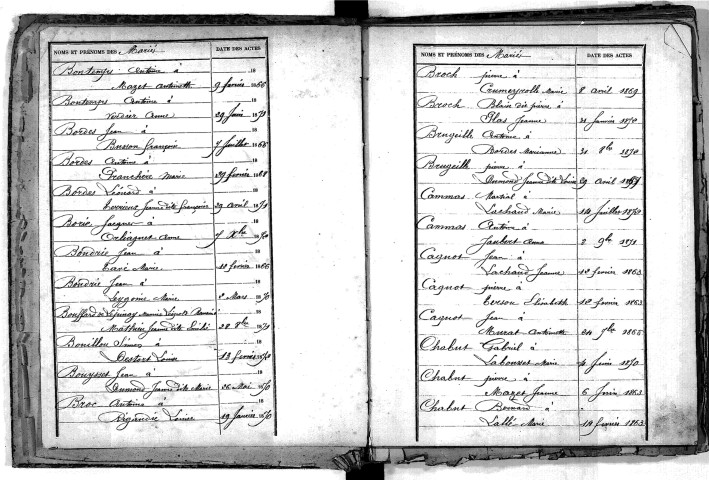 NOMS ET PRÉNOMS DES Mariés DATE DES ACTES
Bontemps Antoine à 18
Mazet Antoinette 9 février 1866
Bontemps Antoine à 18
Verdier Anne 29 Juin 1873
Bordes Jean à 18
Buisson françoise 7 Juillet 1866
Bordes Antoine à 18
Franchère Marie 29 février 1868
Bordes Léonard à 18
Jeanne dite françoise 29 avril 1871
Borie Jacques à 18
Anne 7 Xbre 1870
Bondrie Jean à 18
Tavé Marie 11 février 1866
Bondrie Jean à 18
Leygonie Marie 2 Mars 1870
Bouffard de Lépinay
Mathieu Jeanne dite 28 8bre 1871
Bouillou à 18
Destort Louise 13 février 1872
Bouysset Jean à 18
Dumond Jeanne dite Marie 26 Mai 1870
Broc Antoine à 18
Rigaudie Louise 19 Janvier 1870
NOMS ET PRÉNOMS DES Mariés DATE DES ACTES
Broch pierre à
Marie 8 avril 1869
Broch Blain dit pierre à
Glas Jeanne 31 Janvier 1870
Brugeilh Antoine à
Bordes Marianne 31 8bre 1870
Brugeilh pierre à
Dumond Jeanne dite Louise 29 avril
Cammas Martial à
Lachaud Marie 14 Juillet 1872
Cammas Antoine à
Jaubert Anna 2 9bre 1871
Cagnot Jean à
Lachaud Jeanne 12 février 1863
Cagnot pierre à
Elisabeth 12 février 1863
Cagnot Jean à
Murat Antoinette 24 9bre 1868
Chabut Gabriel à
Labourset Marie 4 Juin 1870
Chabut pierre à
Mazet Jeanne 6 Juin 1863
Chabut Bernard à
Lallé Marie 14 février 1863